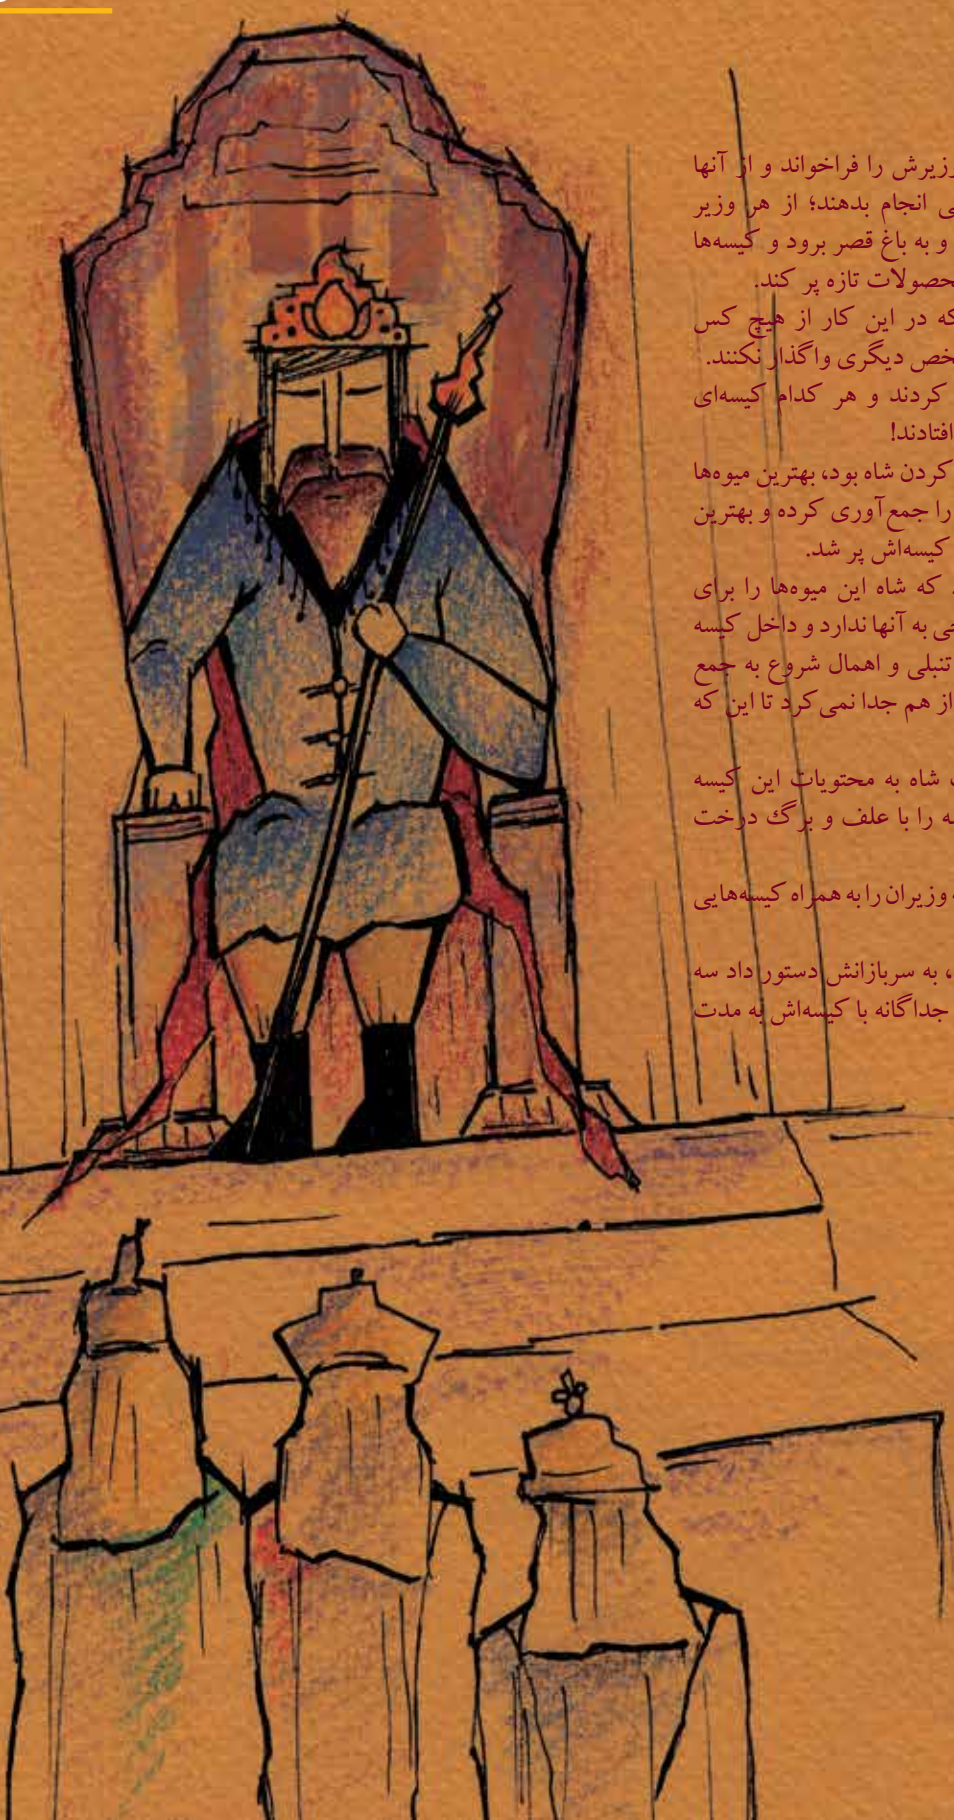 وزیرش را فراخواند و از آنها
انجام بدهند؛ از هر وزیر
و به باغ قصر برود و کیسه‌ها
محصولات تازه پر کند.
که در این کار از هیچ کس
دیگری واگذار نکنند.
کردند و هر کدام کیسه‌ای
افتادند!
کردن شاه بود، بهترین میوه‌ها
را جمع‌آوری کرده و بهترین
کیسه‌اش پر شد.
که شاه این میوه‌ها را برای
به آنها ندارد و داخل کیسه
تنبلی و اهمال شروع به جمع
از هم جدا نمی‌کرد تا این که
شاه به محتویات این کیسه
را با علف و برگ درخت
وزیران را به همراه کیسه‌هایی
، به سربازانش دستور داد سه
جداگانه با کیسه‌اش به مدت